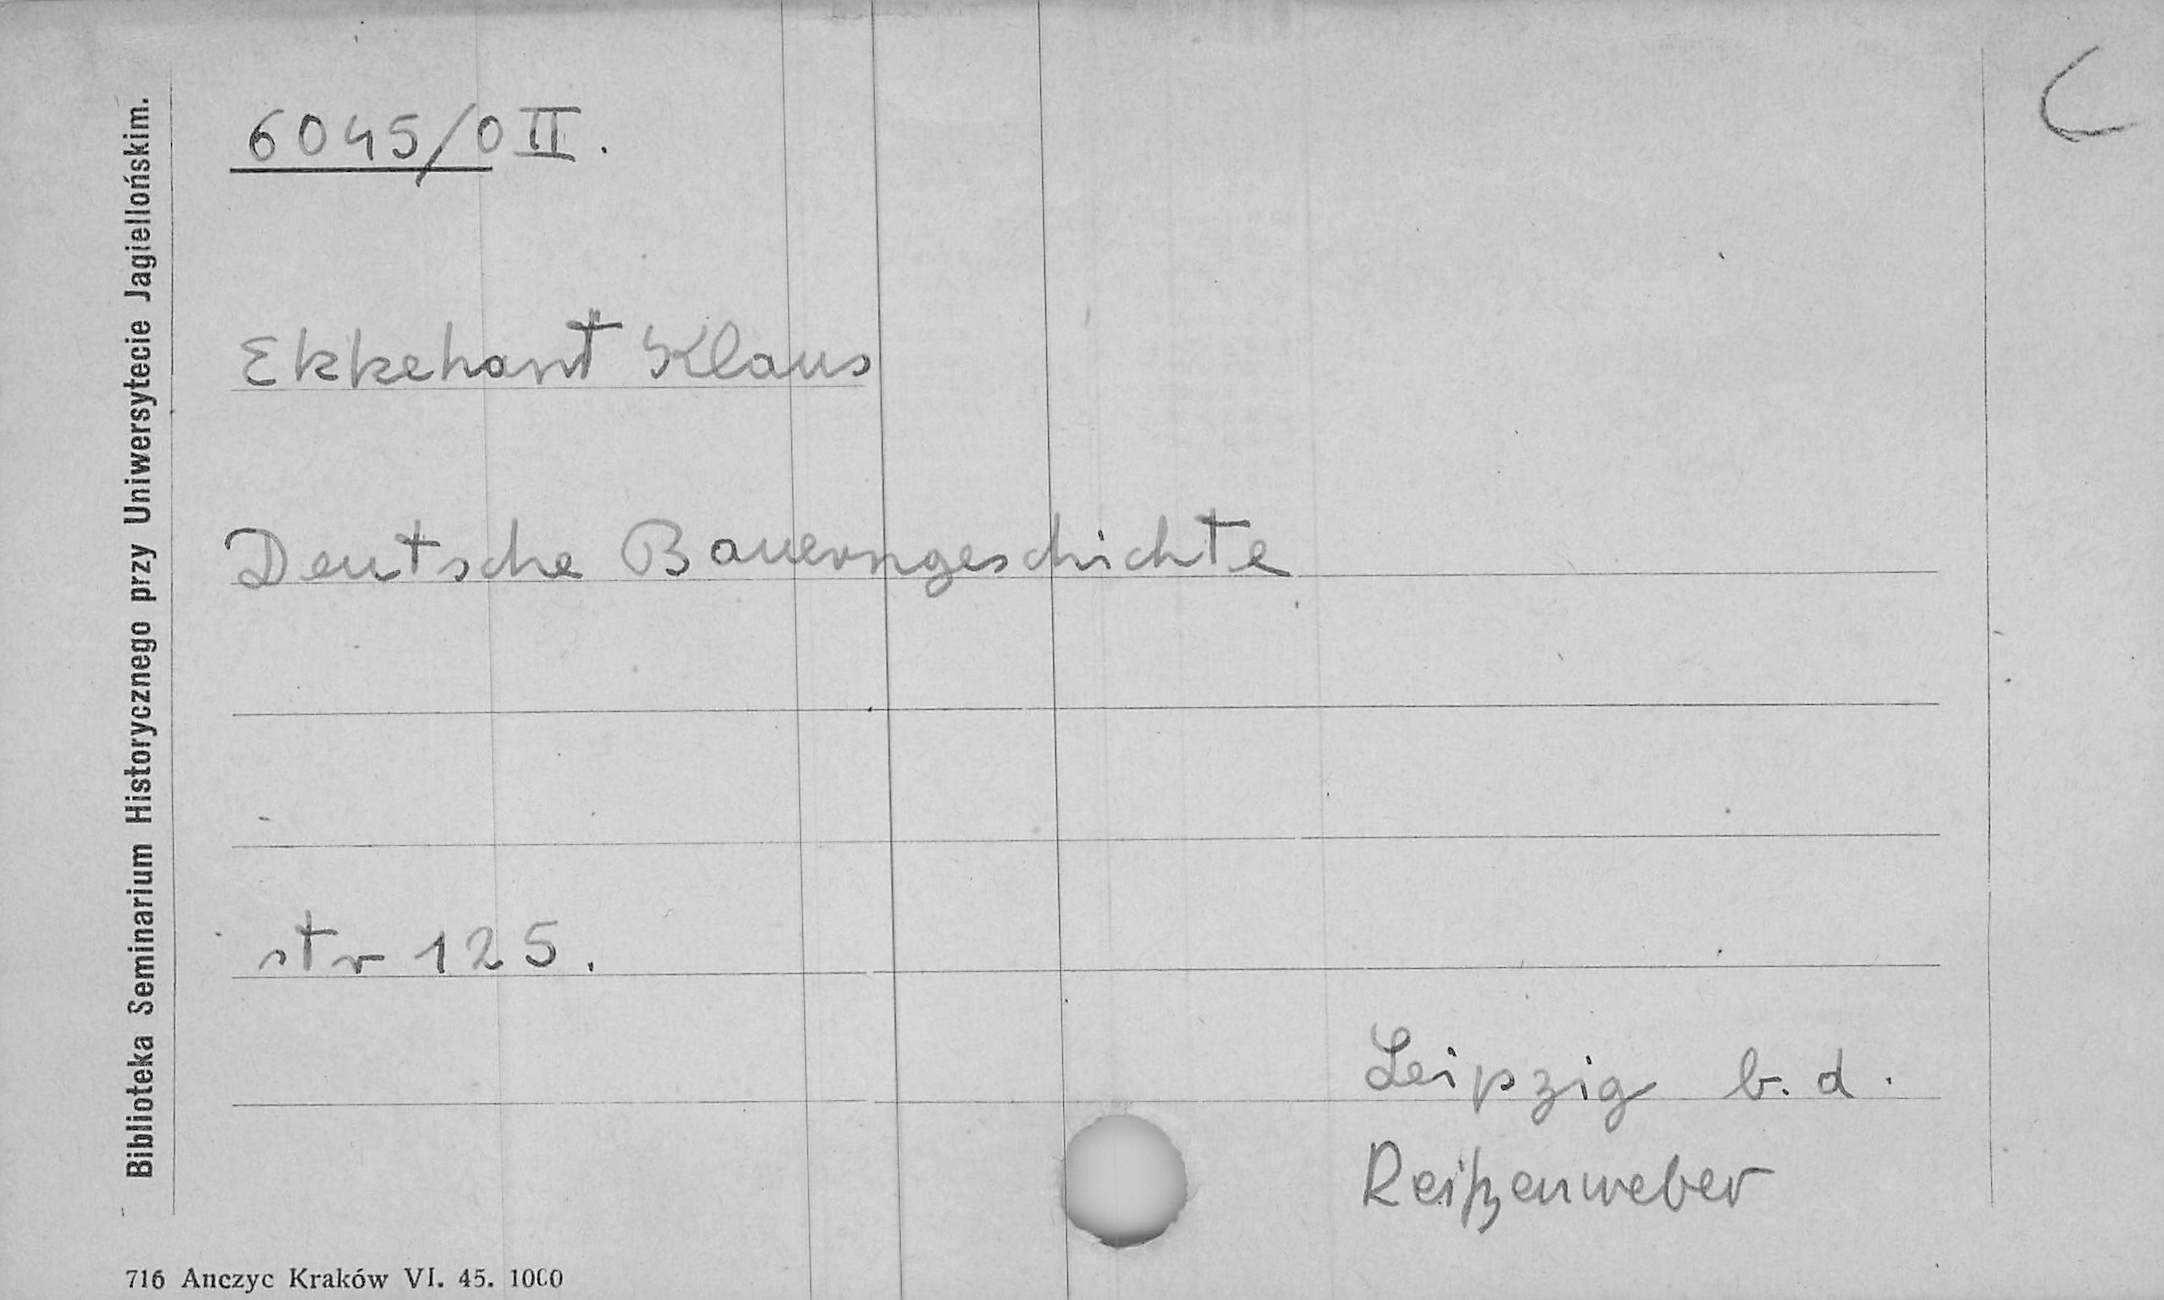 6045/0 II.
Ekkehant Klaus
Deutsche Bauerngeschichte
str 125.
Leipzig b. d.
Reißenweber
Biblioteka Seminarium Historycznego przy Uniwersytecie Jagiellońskim.
716 Anczyc Kraków VI. 45. 1000